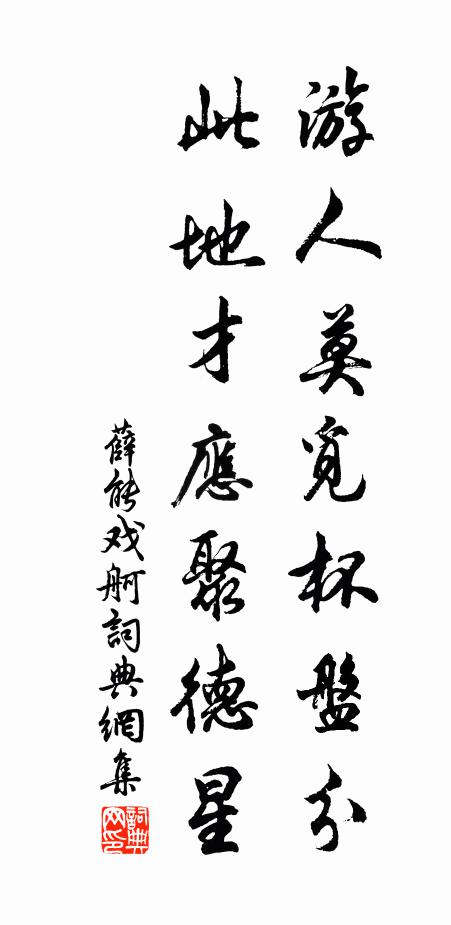 游人莫覓杯盤分
此地才應聚德星
薛能戏舸詞典網集
詞典网印